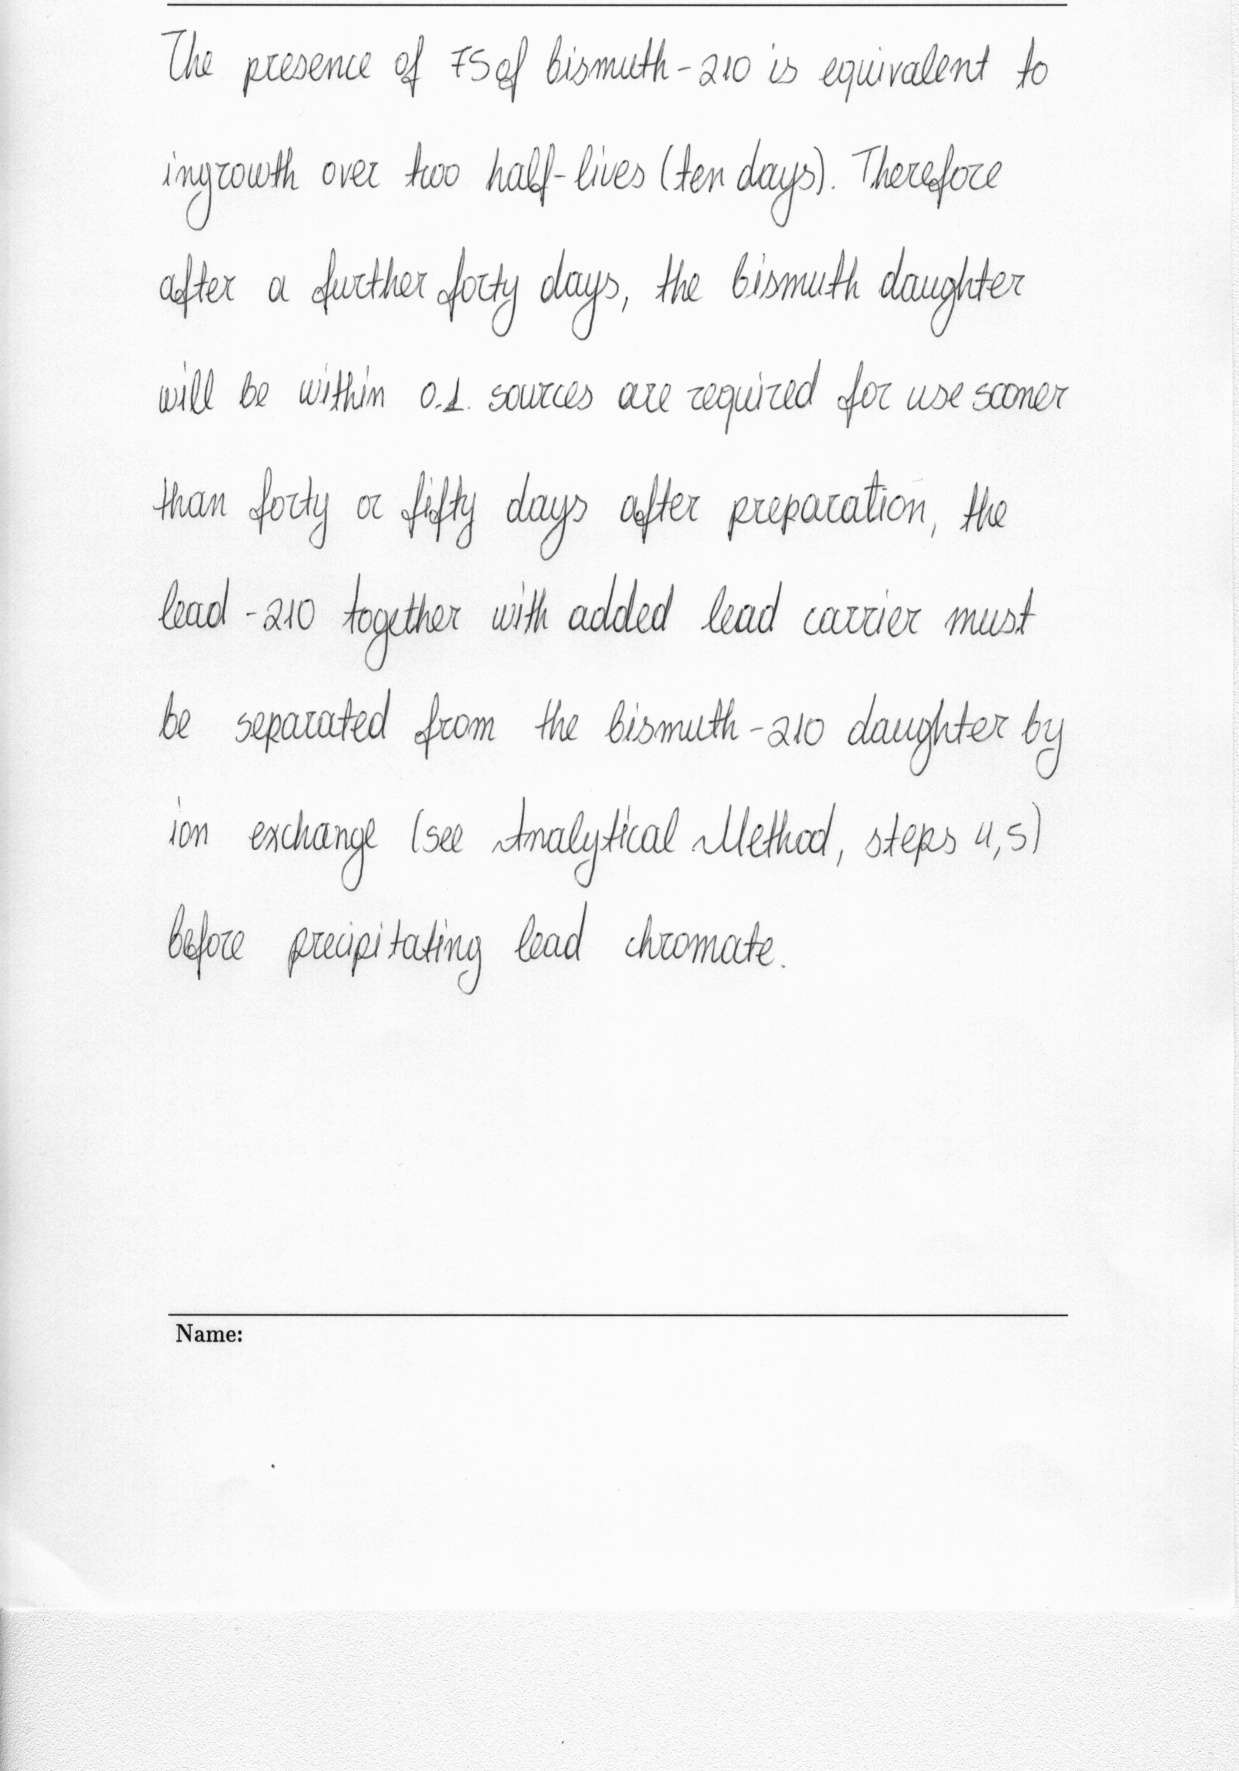 The presence of 75 of bismuth-210 is equivalent to
ingrowth over two half-lives (ten days). Therefore
after a further forty days, the bismuth daughter
will be within 0.1. sources are required for use sooner
than forty or fifty days after preparation, the
lead-210 together with added lead carrier must
be separated from the bismuth-210 daughter by
ion exchange (see Analytical Method, steps 4,5)
before precipitating lead chromate.
Name: